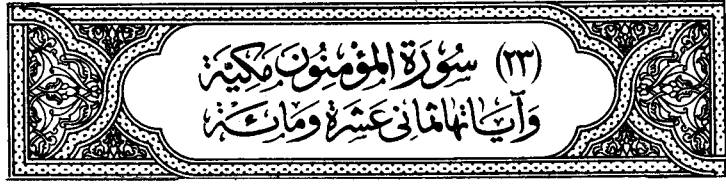 (٢٣) سُورَةُ المُؤْمِنُونَ مَكِيَّة
وَآيَاتُهَا ثَمَانِى عَشْرَةَ وَمَائَة